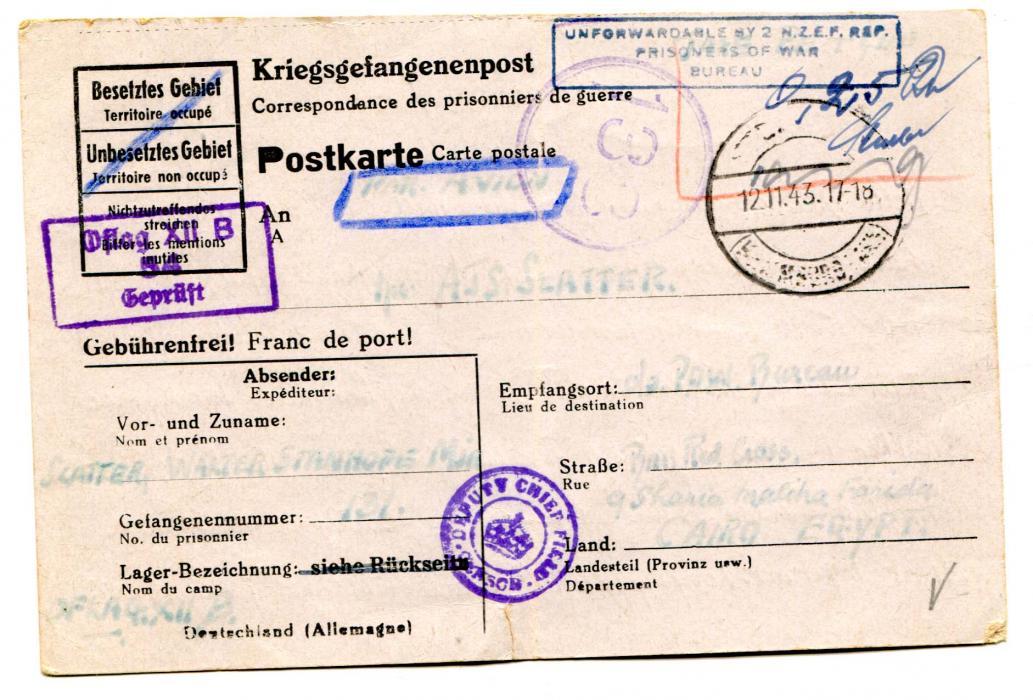 UNFORWARDABLE BY 2 N.Z.E.F. REP.
PRISONERS OF WAR
BUREAU
Besetztes Gebiet
Territoire occupé
Unbesetztes Gebiet
Territoire non occupé
Nichtzutreffendes
streichen
Biffer les mentions
inutiles
Kriegsgefangenenpost
Correspondance des prisonniers de guerre
Postkarte Carte postale
PAR AVION
An
A
Oflag XII B
Geprüft
12.11.43.17-18
A.J.S. SLATTER.
Gebührenfrei! Franc de port!
Absender:
Expéditeur:
Vor- und Zuname:
Nom et prénom
SLATTER, WALTER STANHOPE
Gefangenennummer: 131.
No. du prisonnier
Lager-Bezeichnung: siehe Rückseite
Nom du camp
OFLAG. XII B.
Deutschland (Allemagne)
DEPUTY CHIEF FIELD CENSOR
Empfangsort: P.O.W. Bureau
Lieu de destination
Straße: Red Cross,
Rue
9 Sharia Malika Farida
CAIRO EGYPT
Land:
Landesteil (Provinz usw.)
Département